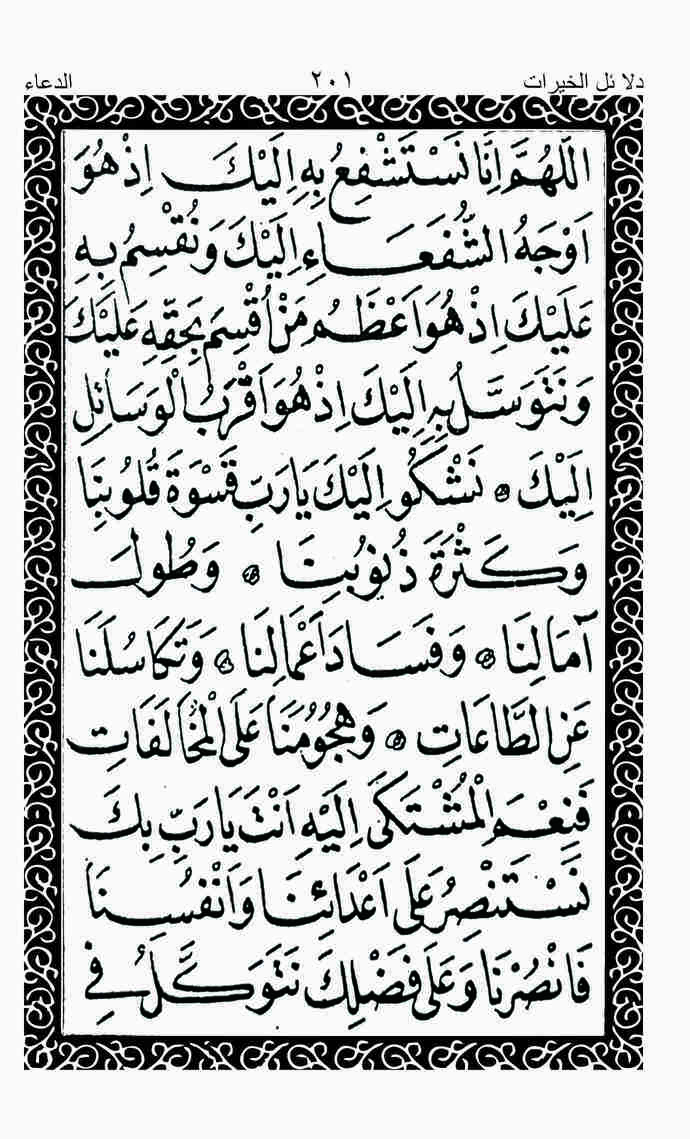 دلائل الخيرات ٢٠١ الدعاء
اَللّٰهُمَّ اِنَّا نَسْتَشْفِعُ بِهِ اِلَيْكَ اِذْ هُوَ
اَوْجَهُ الشُّفَعَاءِ اِلَيْكَ وَنُقْسِمُ بِهِ
عَلَيْكَ اِذْ هُوَ اَعْظَمُ مَنْ اُقْسِمَ بِحَقِّهِ عَلَيْكَ
وَنَتَوَسَّلُ بِهِ اِلَيْكَ اِذْ هُوَ اَقْرَبُ الْوَسَائِلِ
اِلَيْكَ ۞ نَشْكُو اِلَيْكَ يَارَبِّ قَسْوَةَ قُلُوبِنَا
وَكَثْرَةَ ذُنُوبِنَا ۞ وَطُولَ
آمَالِنَا ۞ وَفَسَادَ اَعْمَالِنَا ۞ وَتَكَاسُلَنَا
عَنِ الطَّاعَاتِ ۞ وَهُجُومَنَا عَلَى الْمُخَالَفَاتِ
فَنِعْمَ الْمُشْتَكَى اِلَيْهِ اَنْتَ يَارَبِّ بِكَ
نَسْتَنْصِرُ عَلَى اَعْدَائِنَا وَاَنْفُسِنَا
فَانْصُرْنَا وَعَلَى فَضْلِكَ نَتَوَكَّلُ فِي